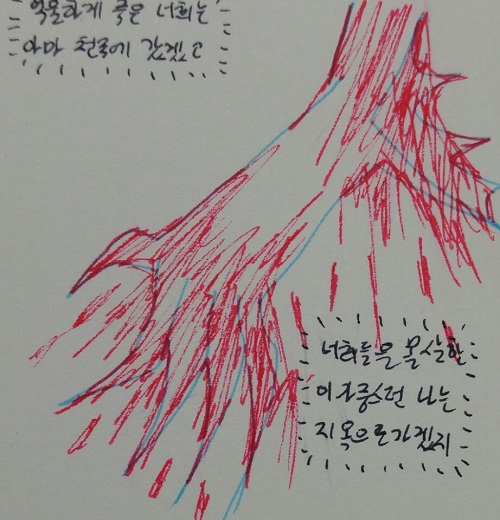 억울하게 죽은 너희는
아마 천국에 갔겠고
너희들을 몰살한
이 자증스런 나는
지옥으로가겠지